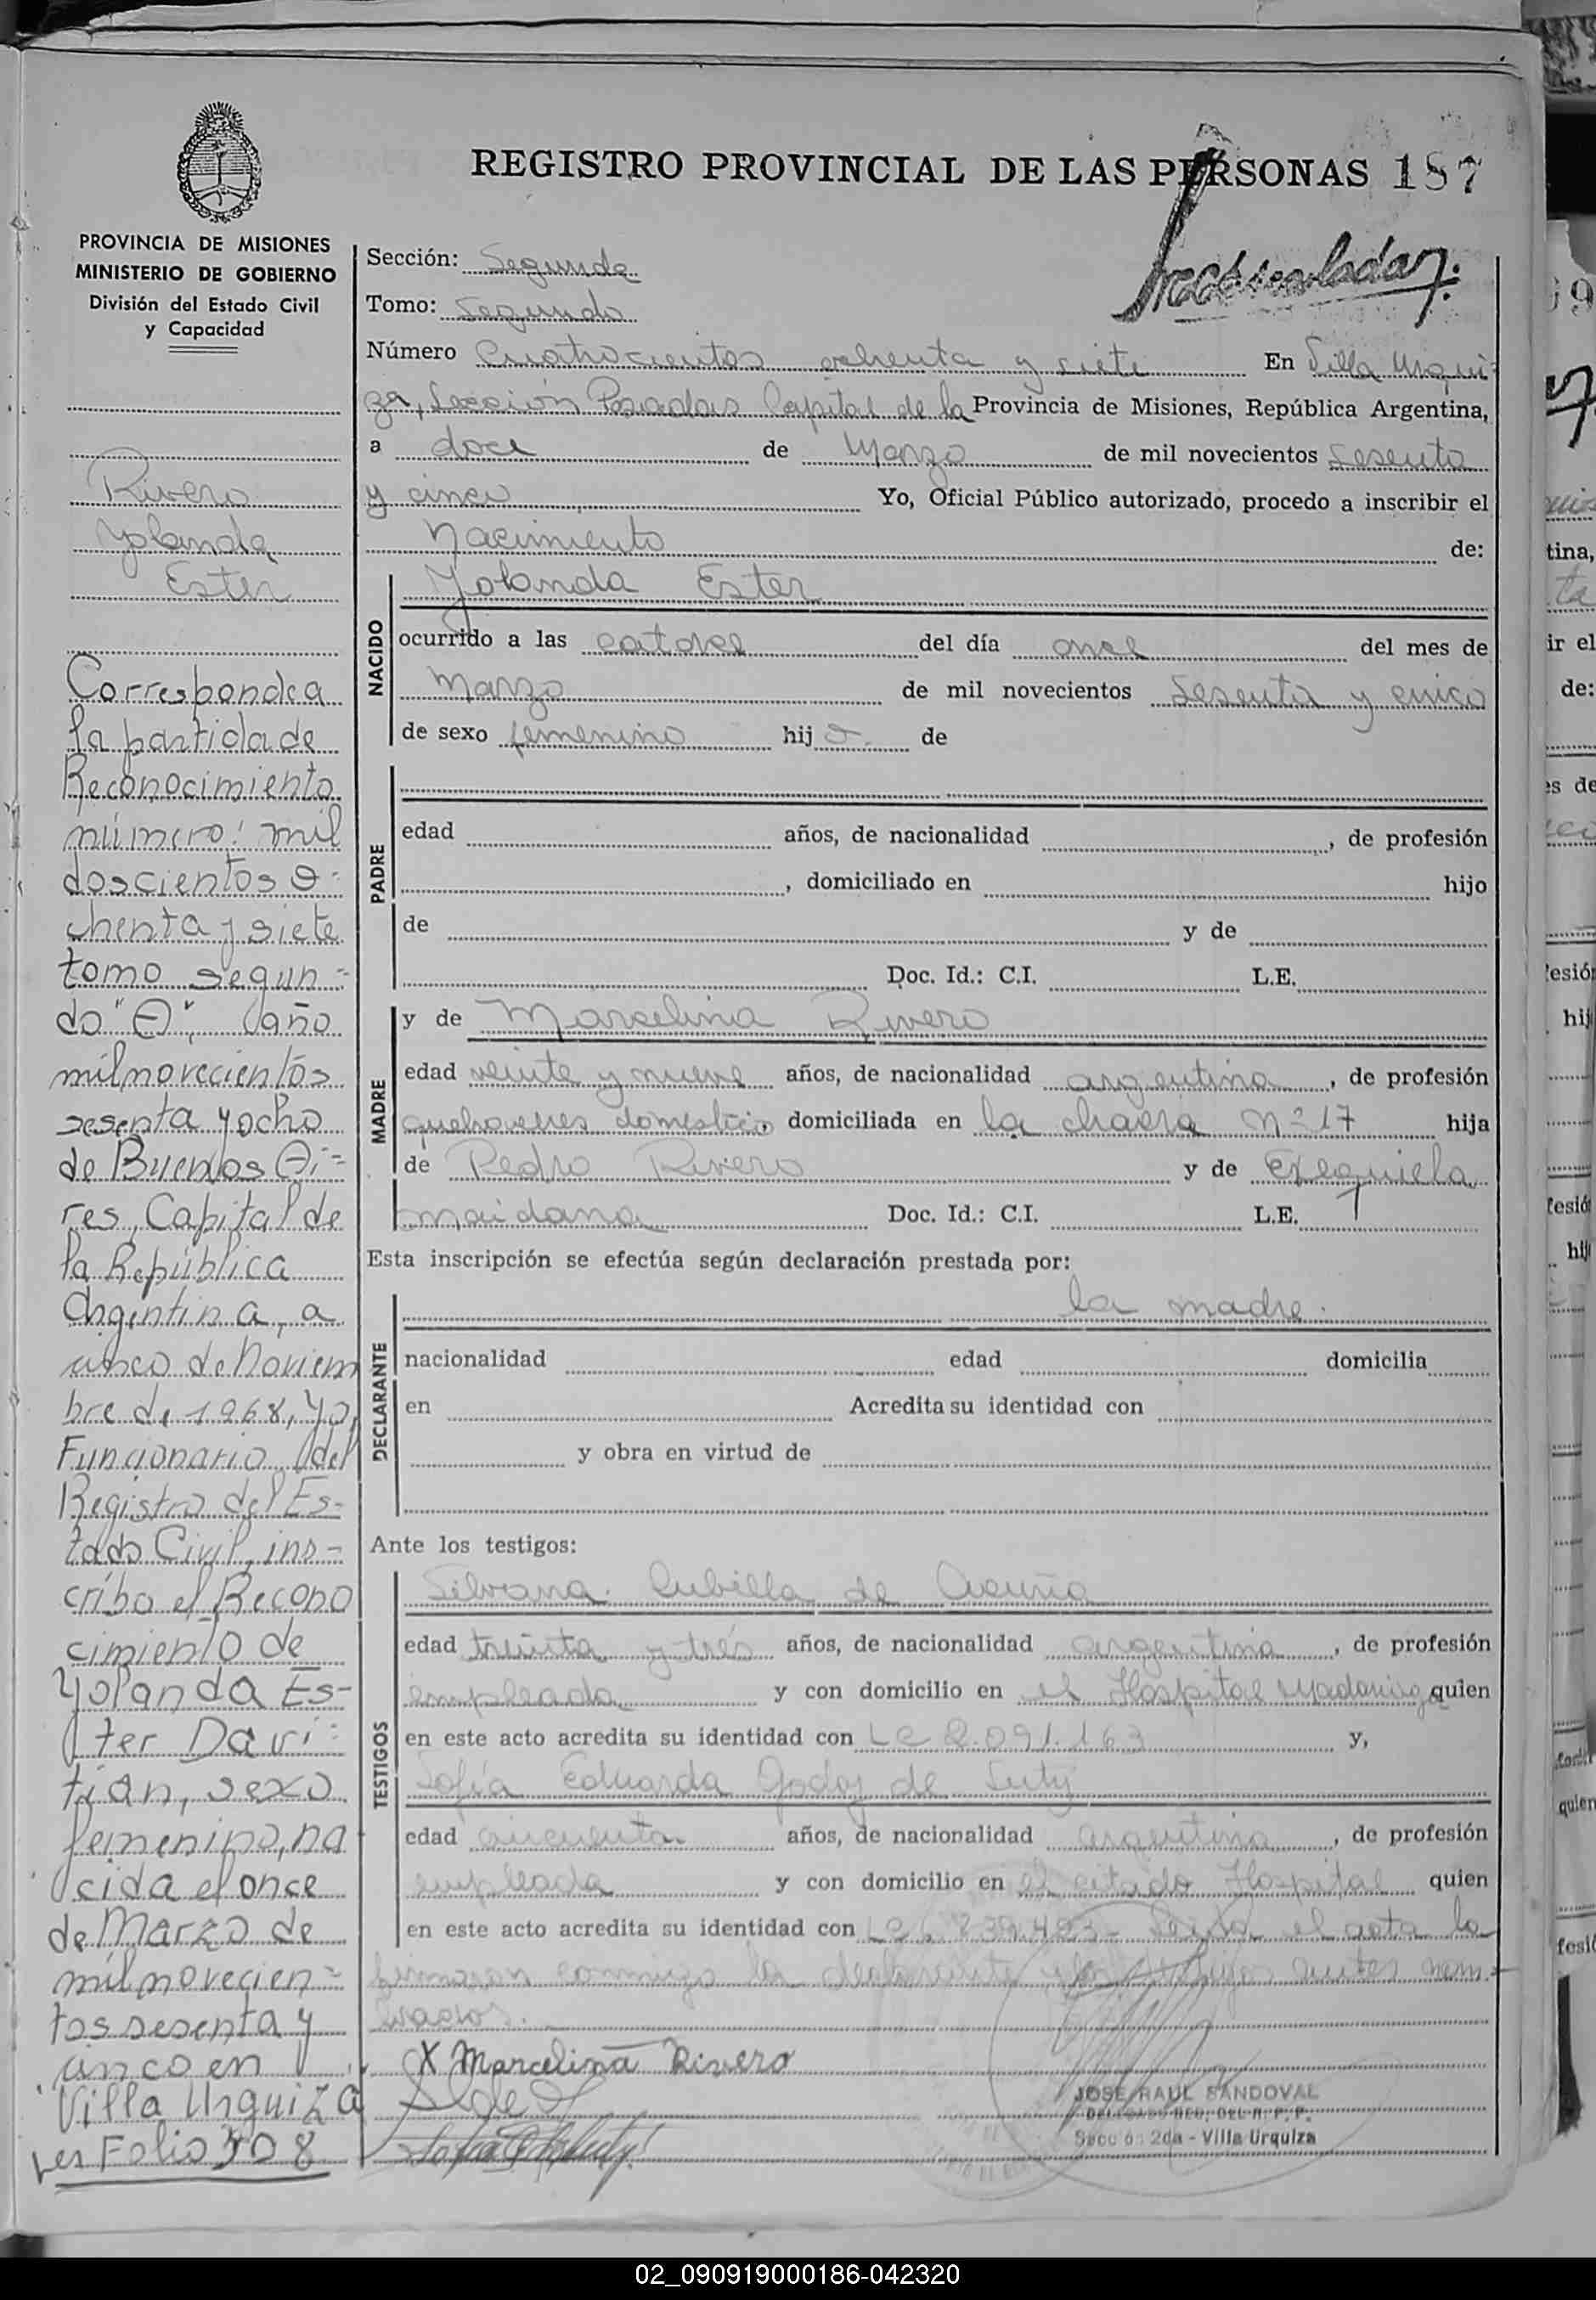 REGISTRO PROVINCIAL DE LAS PERSONAS 187
PROVINCIA DE MISIONES
MINISTERIO DE GOBIERNO
División del Estado Civil
y Capacidad
Rivero
Yolanda
Ester
Corresponde a
la partida de
Reconocimiento
número: mil
doscientos o-
chenta y siete
tomo segun-
do "A", año
mil novecientos
sesenta y ocho
de Buenos Ai-
res, Capital de
la República
Argentina, a
cinco de Noviem
bre de 1968, Yo,
Funcionario del
Registro del Es-
tado Civil, ins-
cribo el Recono
cimiento de
Yolanda Es-
ter Davi-
tian, sexo
femenino, na
cida el once
de Marzo de
mil novecien-
tos sesenta y
cinco en
Villa Urquiza
Folio 308
Sección: Segunda
Tomo: Segundo
Número Cuatrocientos ochenta y siete En Villa Urqui-
za, Sección Posadas Capital de la Provincia de Misiones, República Argentina,
a doce de Marzo de mil novecientos sesenta
y cinco Yo, Oficial Público autorizado, procedo a inscribir el
Nacimiento de:
NACIDO
Yolanda Ester
ocurrido a las catorce del día once del mes de
Marzo de mil novecientos sesenta y cinco
de sexo femenino hij a. de
PADRE
edad años, de nacionalidad , de profesión
, domiciliado en hijo
de y de
Doc. Id.: C.I. L.E.
MADRE
y de Marcelina Rivero
edad veinte y nueve años, de nacionalidad argentina, de profesión
quehaceres domestico, domiciliada en la chacra Nº 17 hija
de Pedro Rivero y de Exequiela
Maidana Doc. Id.: C.I. L.E.
Esta inscripción se efectúa según declaración prestada por:
DECLARANTE
la madre.
nacionalidad edad domicilia
en Acredita su identidad con
y obra en virtud de
Ante los testigos:
TESTIGOS
Silvana Cubilla de Acuña
edad treinta y trés años, de nacionalidad argentina, de profesión
empleada y con domicilio en el Hospital Madariaga quien
en este acto acredita su identidad con LC 2.091.163 y,
Sofía Eduarda Godoy de
edad cincuenta años, de nacionalidad argentina, de profesión
empleada y con domicilio en el citado Hospital quien
en este acto acredita su identidad con LC Leída el acta la
firmaron conmigo la declarante y los testigos antes nom-
brados.
X Marcelina Rivero
JOSE RAUL SANDOVAL
DELEGADO REG. DEL R. P. P.
Sección 2da - Villa Urquiza
02_090919000186-042320